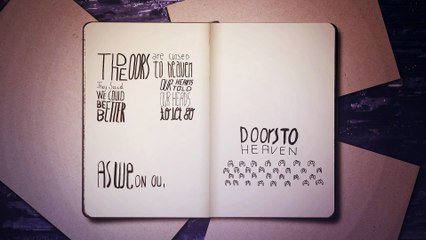 THE DOORS are closed
TO HEAVEN
They said
WE COULD
BE
BETTER
OUR HEARTS
TOLD
OUR HEADS
AS WE ON OU
DOORS TO
HEAVEN